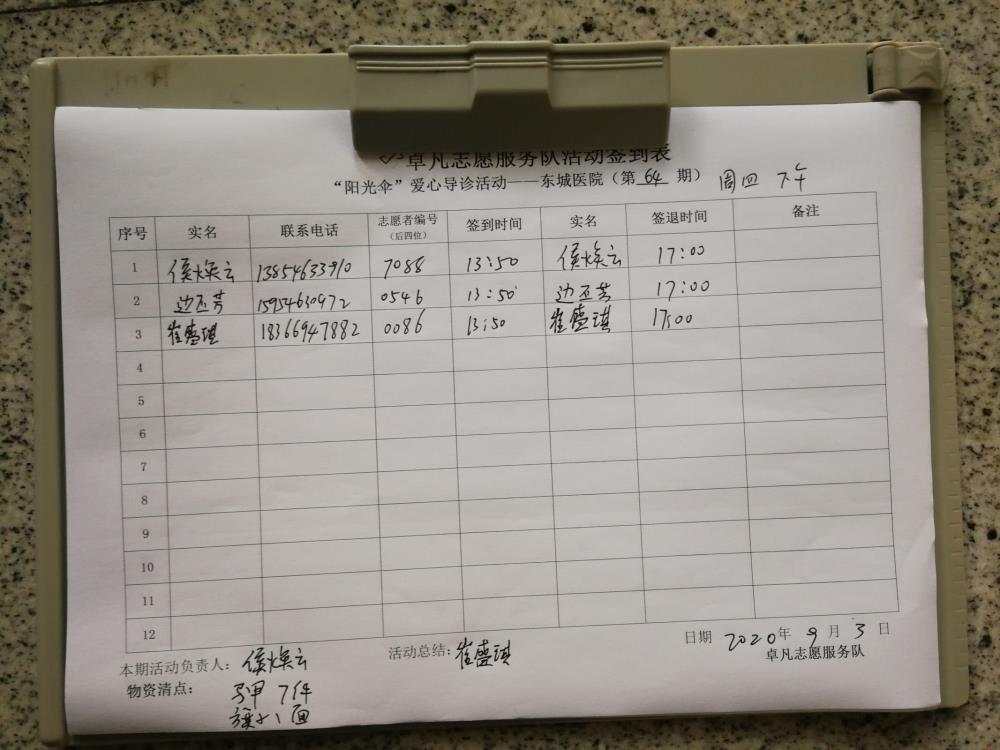 卓凡志愿服务队活动签到表
“阳光伞”爱心导诊活动——东城医院（第 64 期） 周四 下午
序号 实名 联系电话 志愿者编号（后四位） 签到时间 实名 签退时间 备注
1 侯焕云 13854633910 7088 13:50 侯焕云 17:00
2 边丕芳 15954630972 0546 13:50 边丕芳 17:00
3 崔盛琪 18366947882 0086 13:50 崔盛琪 17:00
4
5
6
7
8
9
10
11
12
本期活动负责人：侯焕云 活动总结：崔盛琪 日期 2020年 9 月 3 日
卓凡志愿服务队
物资清点： 马甲 7件
旗子1面